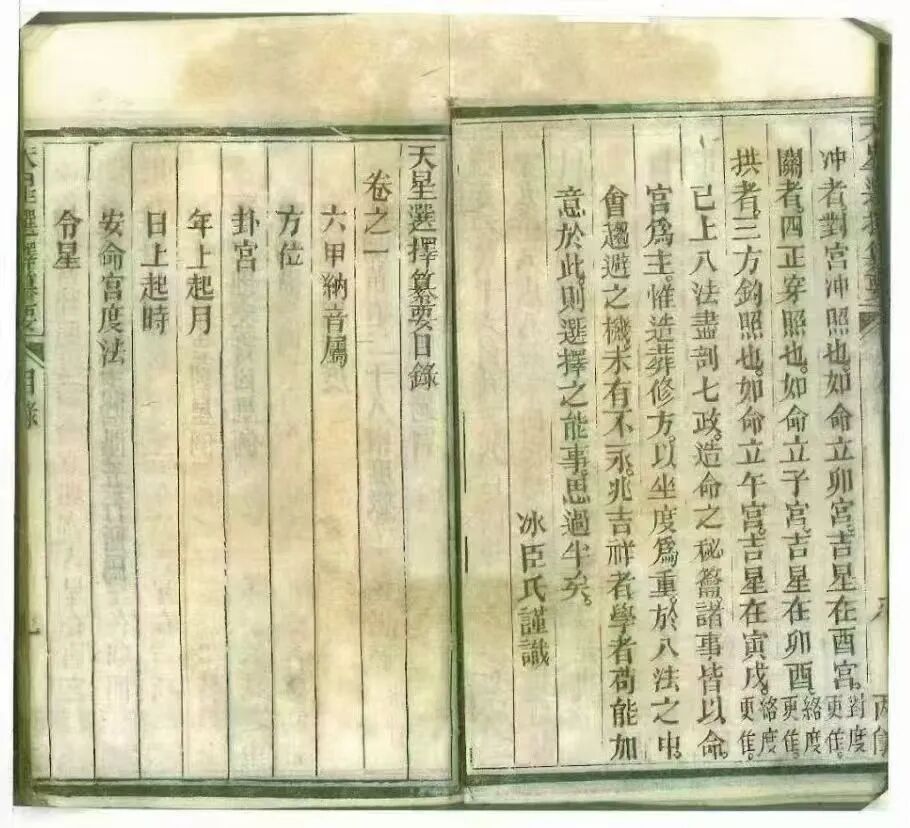 天星選擇纂要
冲者對宮冲照也。如命立卯宮。吉星在酉宮。對度更佳。
關者。四正穿照也。如命立子宮。吉星在卯酉。絡度更佳。
拱者。三方鈎照也。如命立午宮。吉星在寅戌。絡度更佳。
已上八法盡剖七政。造命之秘籥。諸事皆以命
宮爲主。惟造葬修方。以坐度爲重。於八法之中。
會趨避之機。未有不永。兆吉祥者學者苟能加
意於此。則選擇之能事。思過半矣。
冰臣氏謹識
天星選擇纂要目錄
卷之一
六甲納音屬
方位
卦宮
年上起月
日上起時
安命宮度法
令星
天星選擇纂要
目錄
一